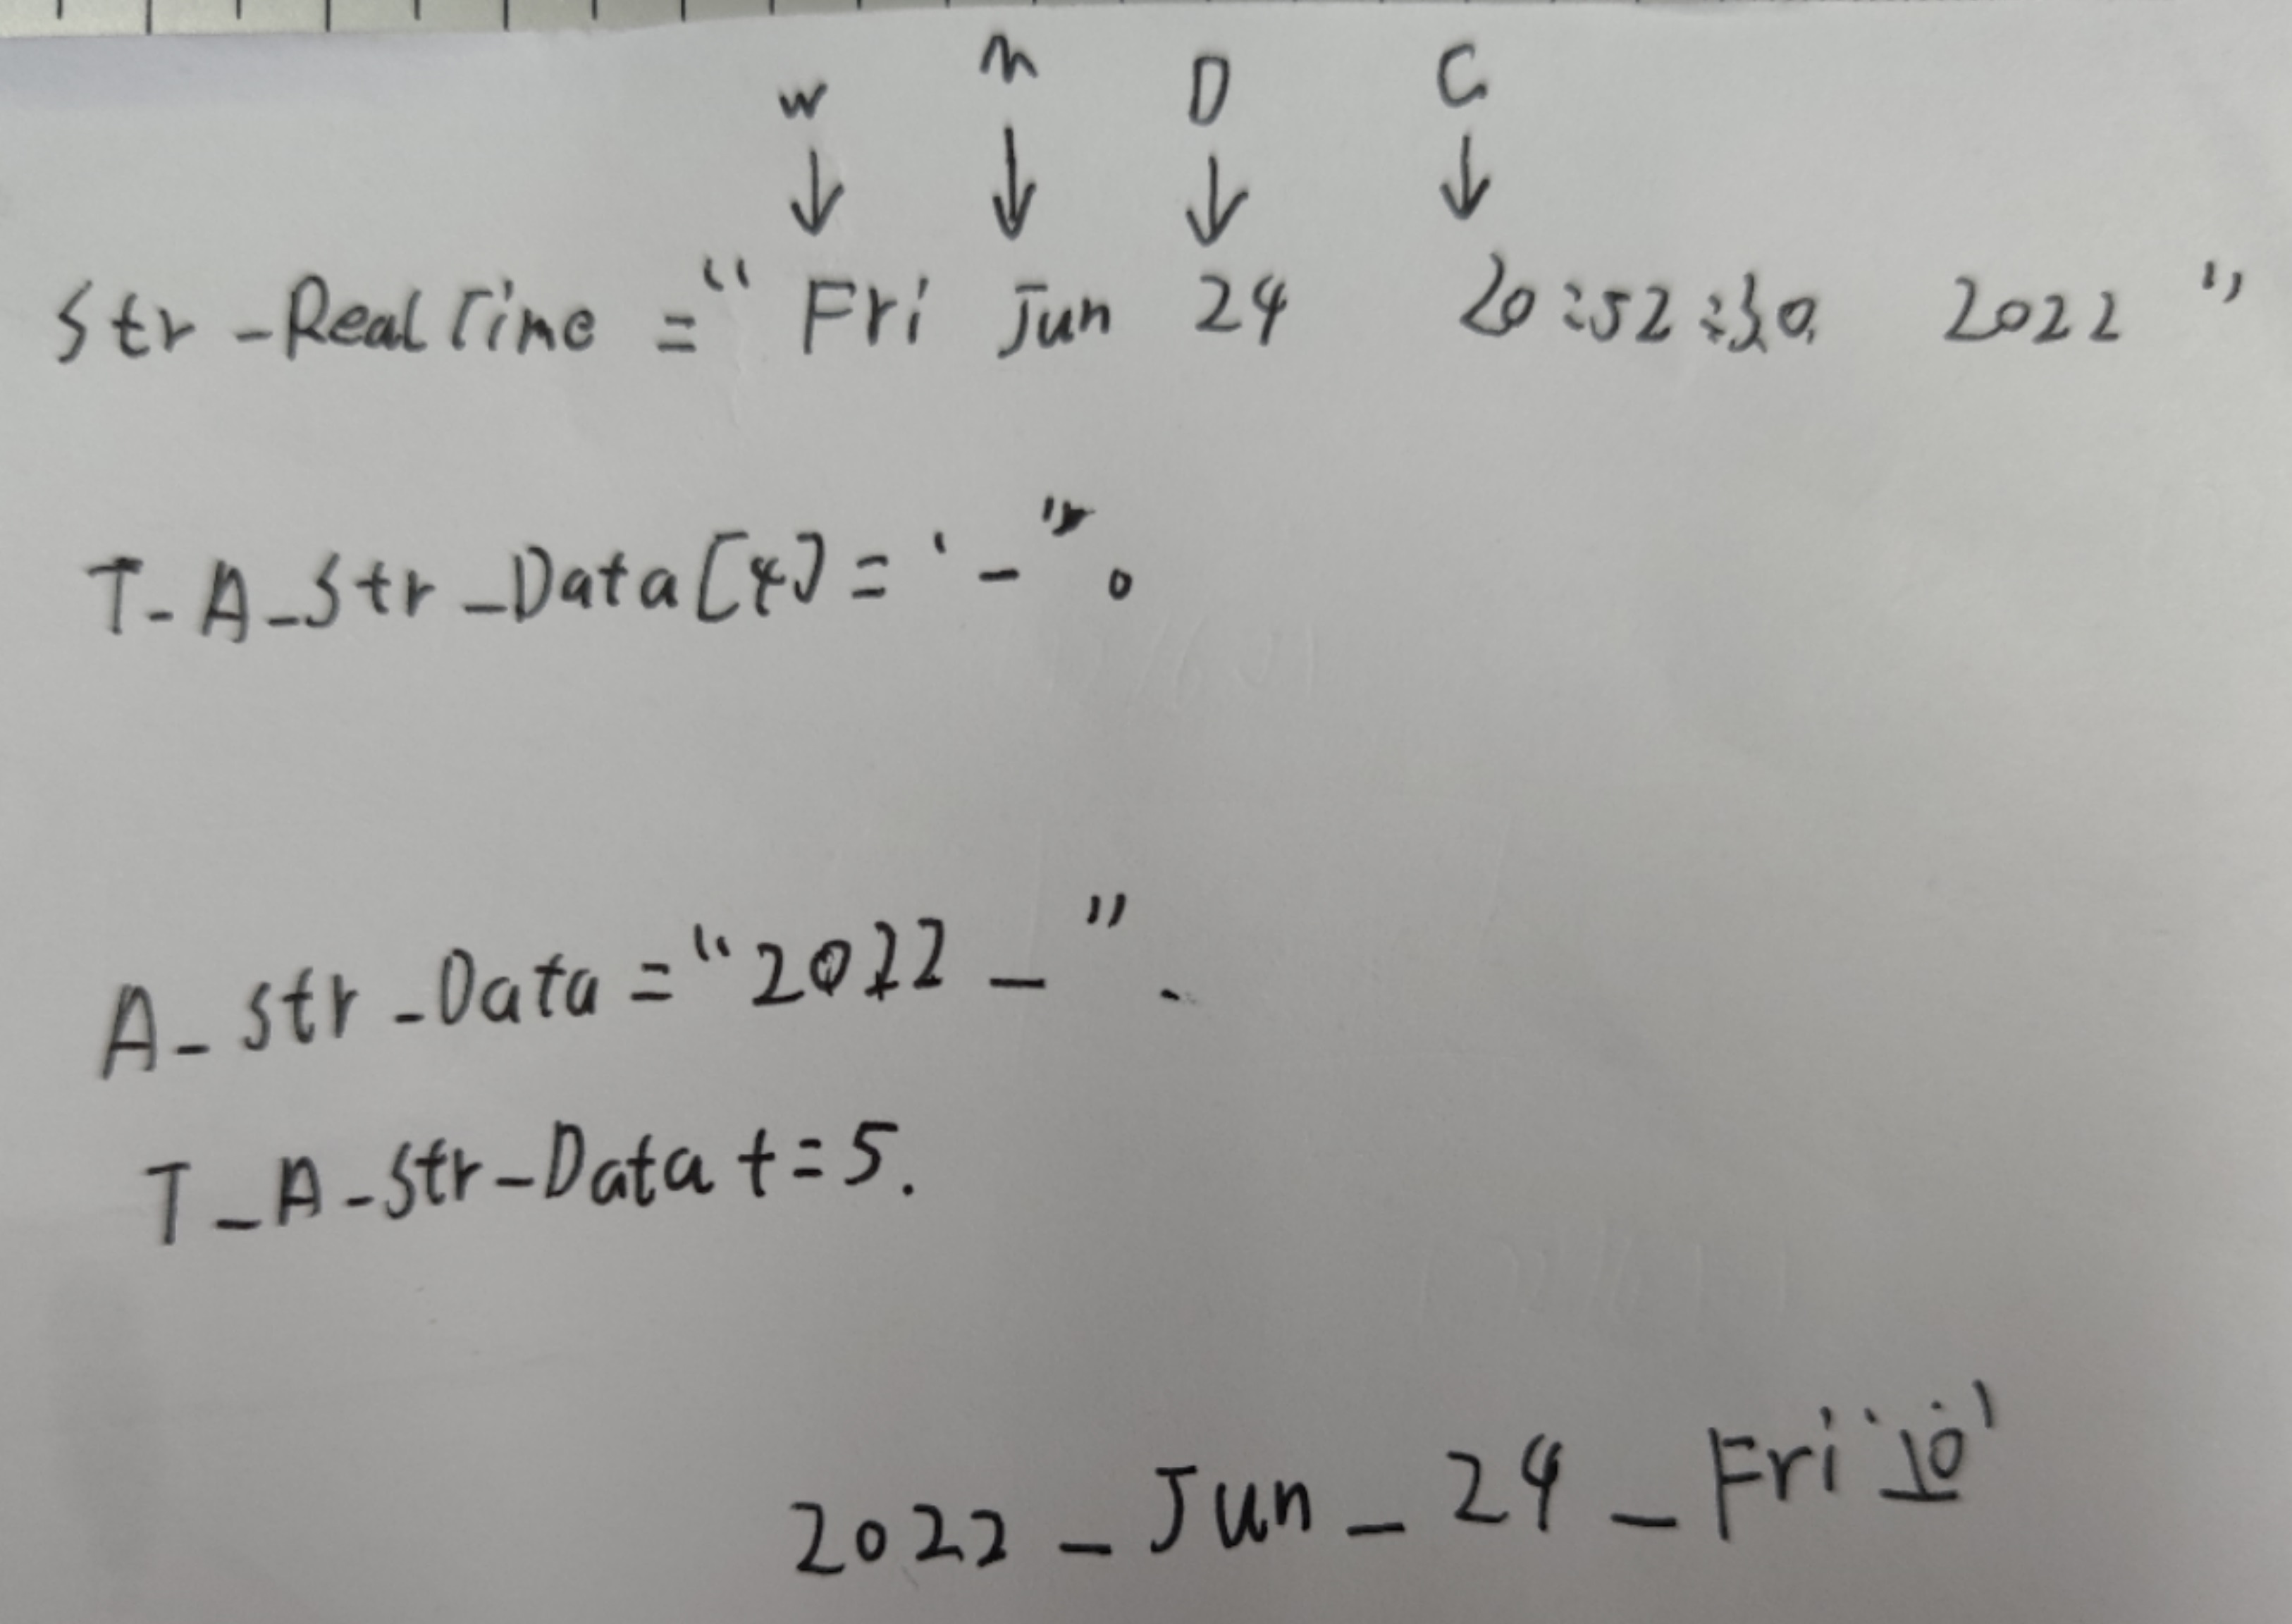 w m D C
↓ ↓ ↓ ↓
Str_RealTime = “ Fri Jun 24 20:52:30 2022 ”
T_A_Str_Data[4] = ‘_’。
A_str_Data = “2022_”.
T_A_Str_Data += 5.
2022_Jun_24_Fri‘\0’